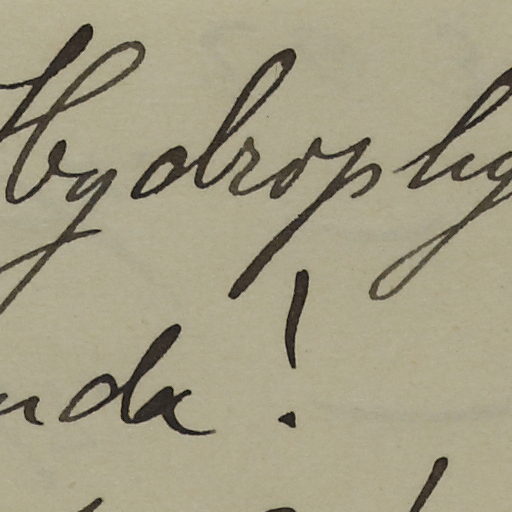 Hydrophy
nda!